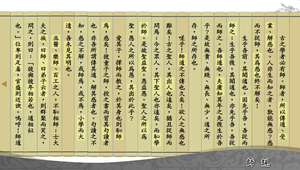 古之學者必有師。師者,所以傳道、受
業、解惑也。人非生而知之者,孰能無惑?惑
而不從師,其為惑也終不解矣!
生乎吾前,其聞道也,固先乎吾,吾從而
師之;生乎吾後,其聞道也,亦先乎吾,吾從而
師之。吾師道也,夫庸知其年之先後生於吾
乎?是故無貴、無賤、無長、無少,道之所
師道之不傳也久矣,欲人之無惑也
難矣!古之聖人,其出人也遠矣,猶且從師而
問焉;今之眾人,其下聖人也亦遠矣,而恥學
於師。是故聖益聖,愚益愚,聖人之所以為
聖,愚人之所以為愚,其皆出於此乎?
愛其子,擇師而教之,於其身也則恥師
焉,惑矣!彼童子之師,授之書而習其句讀者
也,非吾所謂傳其道、解其惑者也。句讀之不
知,惑之不解,或師焉,或不焉,小學而大
遺,吾未見其明也。
巫、醫、樂師、百工之人,不恥相師;士大
夫之族,曰師、曰弟子云者,則群聚而笑之。
問之,則曰:「彼與彼年相若也,道相似
也。」位卑則足羞,官盛則近諛。嗚呼!師道
師說